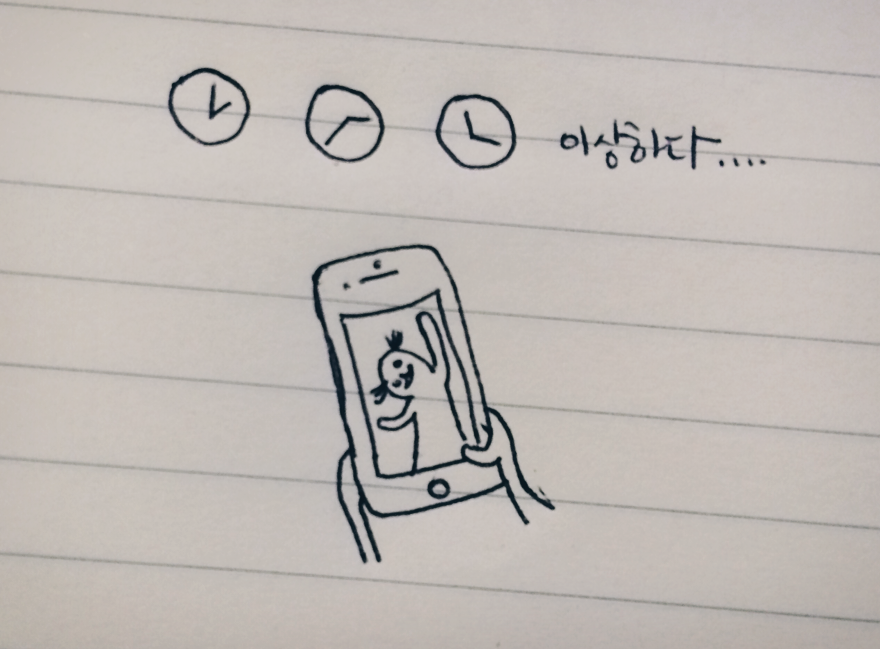 이상하다....